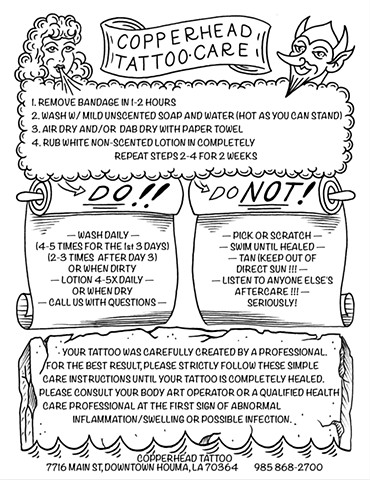 COPPERHEAD
TATTOO•CARE
1. REMOVE BANDAGE IN 1-2 HOURS
2. WASH W/ MILD UNSCENTED SOAP AND WATER (HOT AS YOU CAN STAND)
3. AIR DRY AND/OR DAB DRY WITH PAPER TOWEL
4. RUB WHITE NON-SCENTED LOTION IN COMPLETELY
REPEAT STEPS 2-4 FOR 2 WEEKS
DO!!
— WASH DAILY —
(4-5 TIMES FOR THE 1st 3 DAYS)
(2-3 TIMES AFTER DAY 3)
OR WHEN DIRTY
— LOTION 4-5X DAILY —
OR WHEN DRY
— CALL US WITH QUESTIONS —
DO NOT!
— PICK OR SCRATCH —
— SWIM UNTIL HEALED —
— TAN (KEEP OUT OF
DIRECT SUN !!! —
— LISTEN TO ANYONE ELSE'S
AFTERCARE !!! —
SERIOUSLY!
YOUR TATTOO WAS CAREFULLY CREATED BY A PROFESSIONAL.
FOR THE BEST RESULT, PLEASE STRICTLY FOLLOW THESE SIMPLE
CARE INSTRUCTIONS UNTIL YOUR TATTOO IS COMPLETELY HEALED.
PLEASE CONSULT YOUR BODY ART OPERATOR OR A QUALIFIED HEALTH
CARE PROFESSIONAL AT THE FIRST SIGN OF ABNORMAL
INFLAMMATION/SWELLING OR POSSIBLE INFECTION.
COPPERHEAD TATTOO
7716 MAIN ST, DOWNTOWN HOUMA, LA 70364 985 868-2700